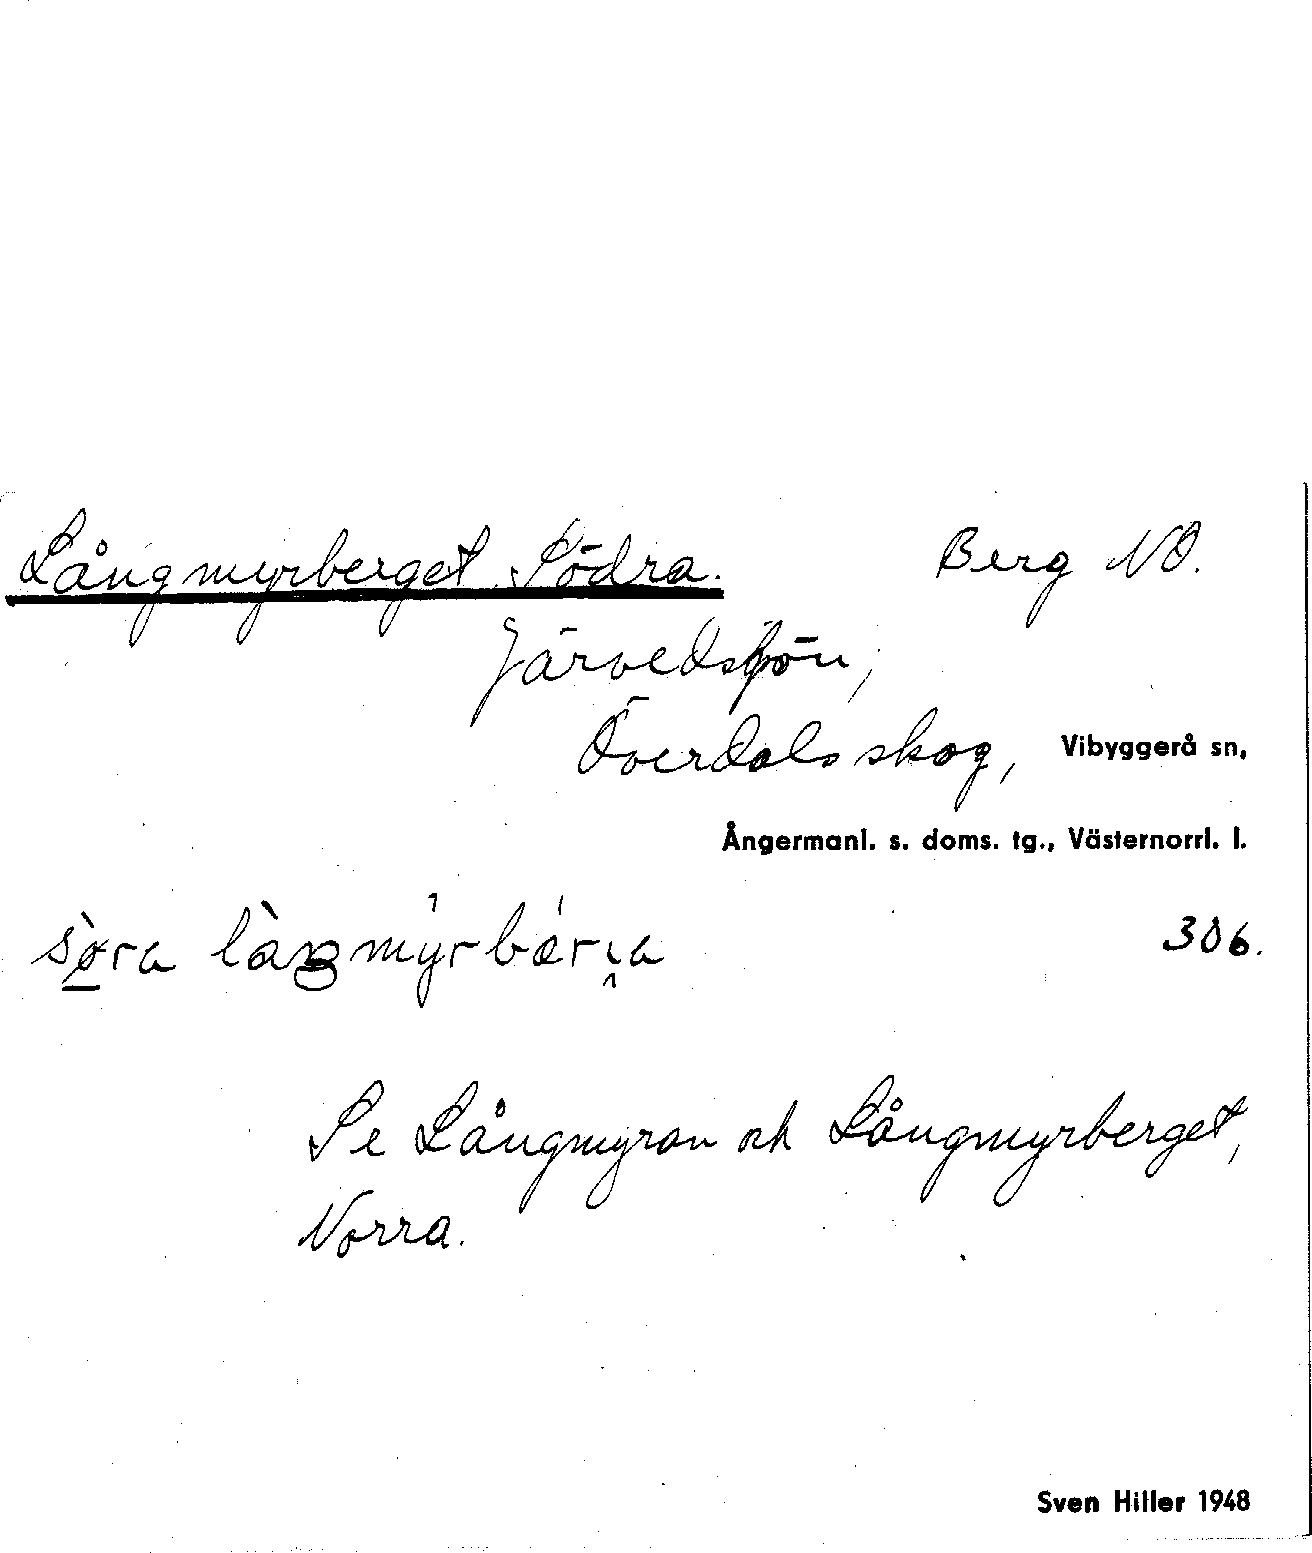 Långmyrberget Södra. Berg NO.
Järvedsjön,
Överdalsskog, Vibyggerå sn,
Ångermanl. s. doms. tg., Västernorrl. l.
306.
Se Långmyran och Långmyrberget,
Norra.
Sven Hiller 1948